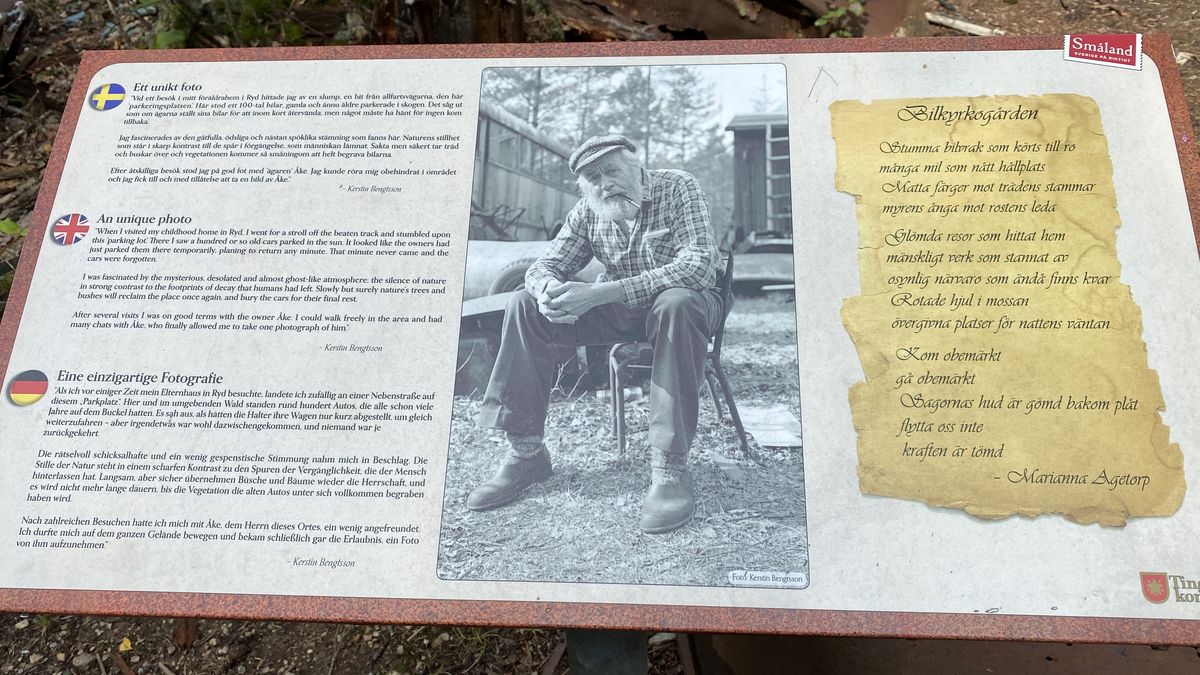 Ett unikt foto
"Vid ett besök i mitt föräldrahem i Ryd hittade jag av en slump, en bit från allfartsvägarna, den här
'parkeringsplatsen'. Här stod ett 100-tal bilar, gamla och ännu äldre parkerade i skogen. Det såg ut
som om ägarna ställt sina bilar för att inom kort återvända, men något måste ha hänt för ingen kom
tillbaka.
Jag fascinerades av den gåtfulla, ödsliga och nästan spöklika stämning som fanns här. Naturens stillhet
som står i skarp kontrast till de spår i förgängelse, som människan lämnat. Sakta men säkert tar träd
och buskar över och vegetationen kommer så småningom att helt begrava bilarna.
Efter åtskilliga besök stod jag på god fot med 'ägaren' Åke. Jag kunde röra mig obehindrat i området
och jag fick till och med tillåtelse att ta en bild av Åke."
- Kerstin Bengtsson
An unique photo
"When I visited my childhood home in Ryd, I went for a stroll off the beaten track and stumbled upon
this 'parking lot'. There I saw a hundred or so old cars parked in the sun. It looked like the owners had
just parked them there temporarily, planing to return any minute. That minute never came and the
cars were forgotten.
I was fascinated by the mysterious, desolated and almost ghost-like atmosphere; the silence of nature
in strong contrast to the footprints of decay that humans had left. Slowly but surely nature's trees and
bushes will reclaim the place once again, and bury the cars for their final rest.
After several visits I was on good terms with the owner Åke. I could walk freely in the area and had
many chats with Åke, who finally allowed me to take one photograph of him."
- Kerstin Bengtsson
Eine einzigartige Fotografie
"Als ich vor einiger Zeit mein Elternhaus in Ryd besuchte, landete ich zufällig an einer Nebenstraße auf
diesem „Parkplatz". Hier und im umgebenden Wald standen rund hundert Autos, die alle schon viele
Jahre auf dem Buckel hatten. Es sah aus, als hätten die Halter ihre Wagen nur kurz abgestellt, um gleich
weiterzufahren - aber irgendetwas war wohl dazwischengekommen, und niemand war je
zurückgekehrt.
Die rätselvoll schicksalhafte und ein wenig gespenstische Stimmung nahm mich in Beschlag. Die
Stille der Natur steht in einem scharfen Kontrast zu den Spuren der Vergänglichkeit, die der Mensch
hinterlassen hat. Langsam, aber sicher übernehmen Büsche und Bäume wieder die Herrschaft, und
es wird nicht mehr lange dauern, bis die Vegetation die alten Autos unter sich vollkommen begraben
haben wird.
Nach zahlreichen Besuchen hatte ich mich mit Åke, dem Herrn dieses Ortes, ein wenig angefreundet.
Ich durfte mich auf dem ganzen Gelände bewegen und bekam schließlich gar die Erlaubnis, ein Foto
von ihm aufzunehmen."
- Kerstin Bengtsson
Foto: Kerstin Bengtsson
Småland
SVERIGE PÅ RIKTIGT
Bilkyrkogården
Stumma bilvrak som körts till ro
många mil som nått hållplats
Matta färger mot trädens stammar
myrens ånga mot rostens leda
Glömda resor som hittat hem
mänskligt verk som stannat av
osynlig närvaro som ändå finns kvar
Rotade hjul i mossan
övergivna platser för nattens väntan
Kom obemärkt
gå obemärkt
Sagornas hud är gömd bakom plåt
flytta oss inte
kraften är tömd
- Marianna Agetorp